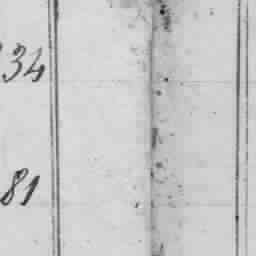 34
81